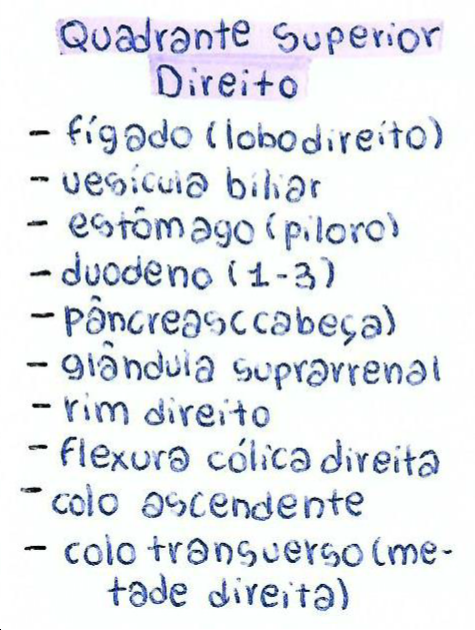 Quadrante Superior
Direito
- fígado (lobo direito)
- vesícula biliar
- estômago (piloro)
- duodeno (1-3)
- pâncreas (cabeça)
- glândula suprarrenal
- rim direito
- flexura cólica direita
- colo ascendente
- colo transverso (me-
tade direita)